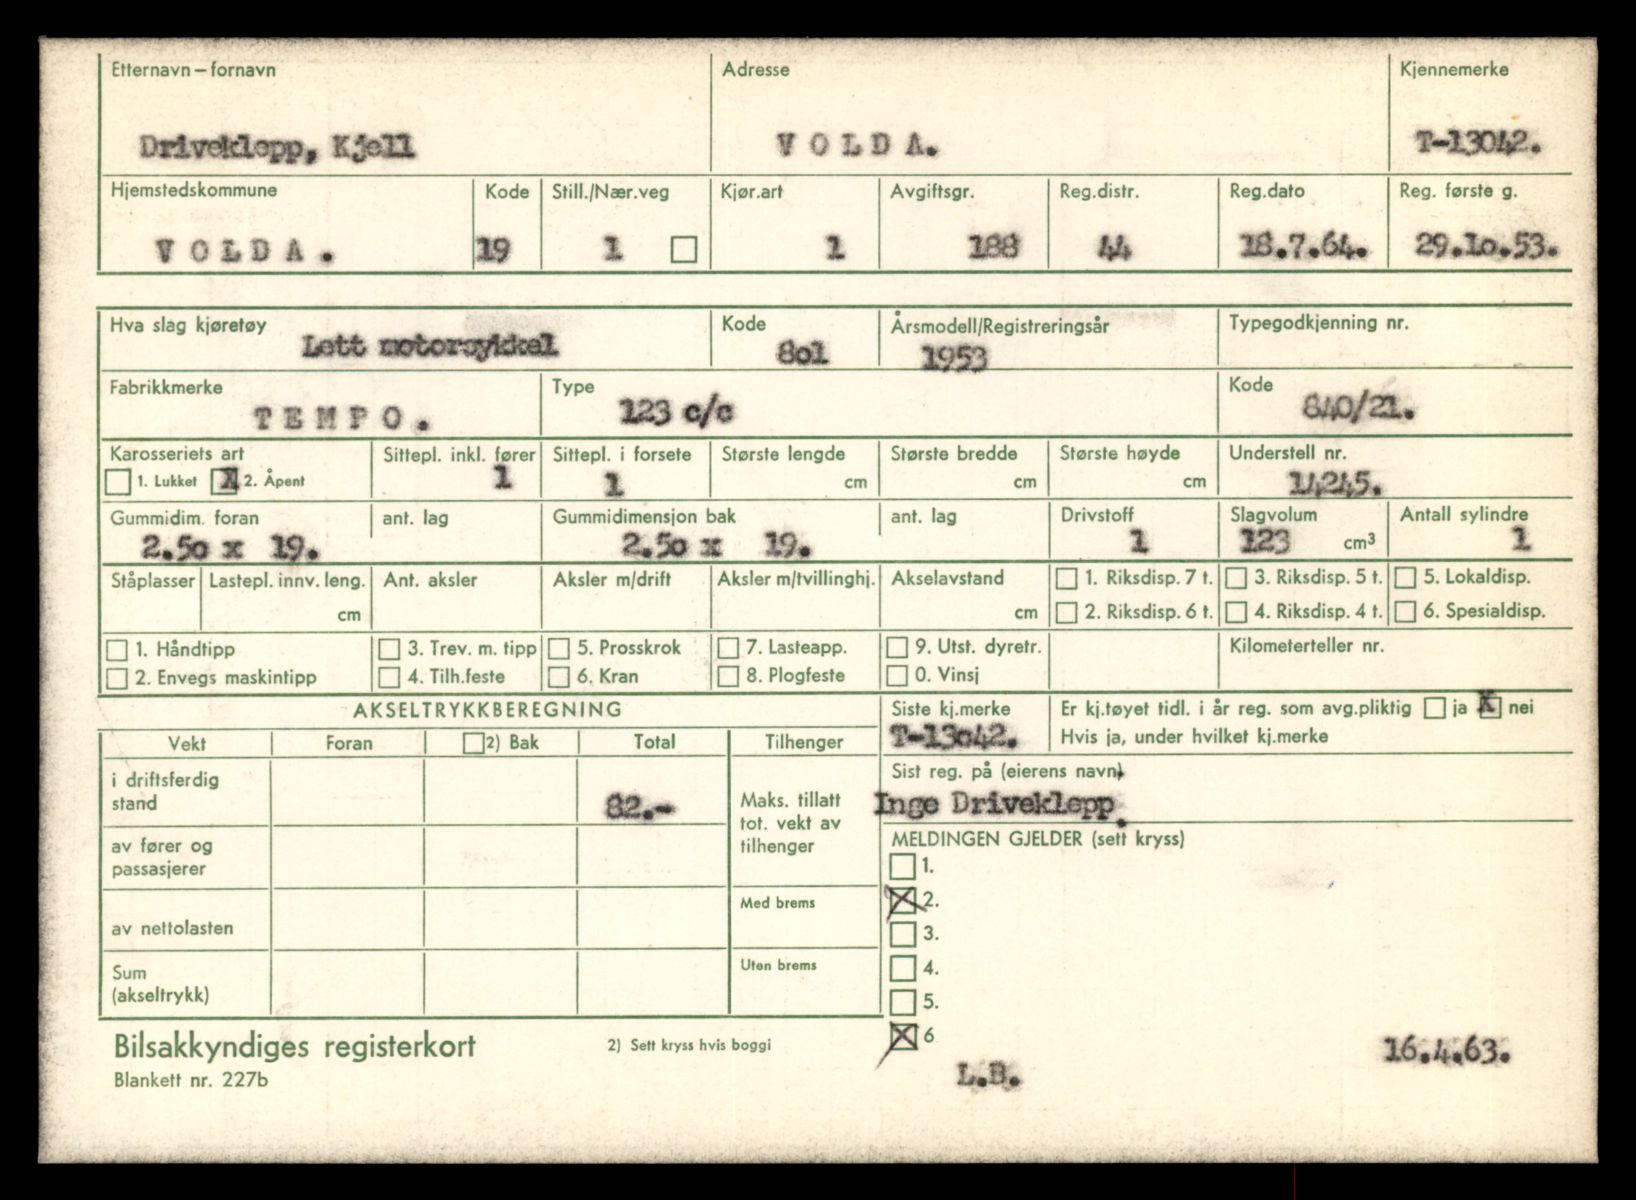 Etternavn – fornavn Adresse Kjennemerke
Driveklepp, Kjell V O L D A. T-13042.
Hjemstedskommune Kode Still./Nær.veg Kjør.art Avgiftsgr. Reg.distr. Reg.dato Reg. første g.
V O L D A . 19 1 1 188 44 18.7.64. 29.1o.53.
Hva slag kjøretøy Kode Årsmodell/Registreringsår Typegodkjenning nr.
Lett motorsykkel 8o1 1953
Fabrikkmerke Type Kode
T E M P O . 123 c/c 840/21.
Karosseriets art Sittepl. inkl. fører Sittepl. i forsete Største lengde Største bredde Største høyde Understell nr.
1. Lukket X 2. Åpent 1 1 cm cm cm 14245.
Gummidim. foran ant. lag Gummidimensjon bak ant. lag Drivstoff Slagvolum Antall sylindre
2.5o x 19. 2.5o x 19. 1 123 cm³ 1
Ståplasser Lastepl. innv. leng. Ant. aksler Aksler m/drift Aksler m/tvillinghj. Akselavstand 1. Riksdisp. 7 t. 3. Riksdisp. 5 t. 5. Lokaldisp.
cm cm 2. Riksdisp. 6 t. 4. Riksdisp. 4 t. 6. Spesialdisp.
1. Håndtipp 3. Trev. m. tipp 5. Prosskrok 7. Lasteapp. 9. Utst. dyretr. Kilometerteller nr.
2. Envegs maskintipp 4. Tilh.feste 6. Kran 8. Plogfeste 0. Vinsj
AKSELTRYKKBEREGNING Siste kj.merke Er kj.tøyet tidl. i år reg. som avg.pliktig ja X nei
T-13o42. Hvis ja, under hvilket kj.merke
Vekt Foran 2) Bak Total Tilhenger
Sist reg. på (eierens navn)
i driftsferdig
stand 82.- Maks. tillatt Inge Driveklepp.
tot. vekt av
av fører og tilhenger MELDINGEN GJELDER (sett kryss)
passasjerer 1.
Med brems X 2.
av nettolasten 3.
Sum Uten brems 4.
(akseltrykk) 5.
X 6
Bilsakkyndiges registerkort 2) Sett kryss hvis boggi 16.4.63.
Blankett nr. 227b L.B.